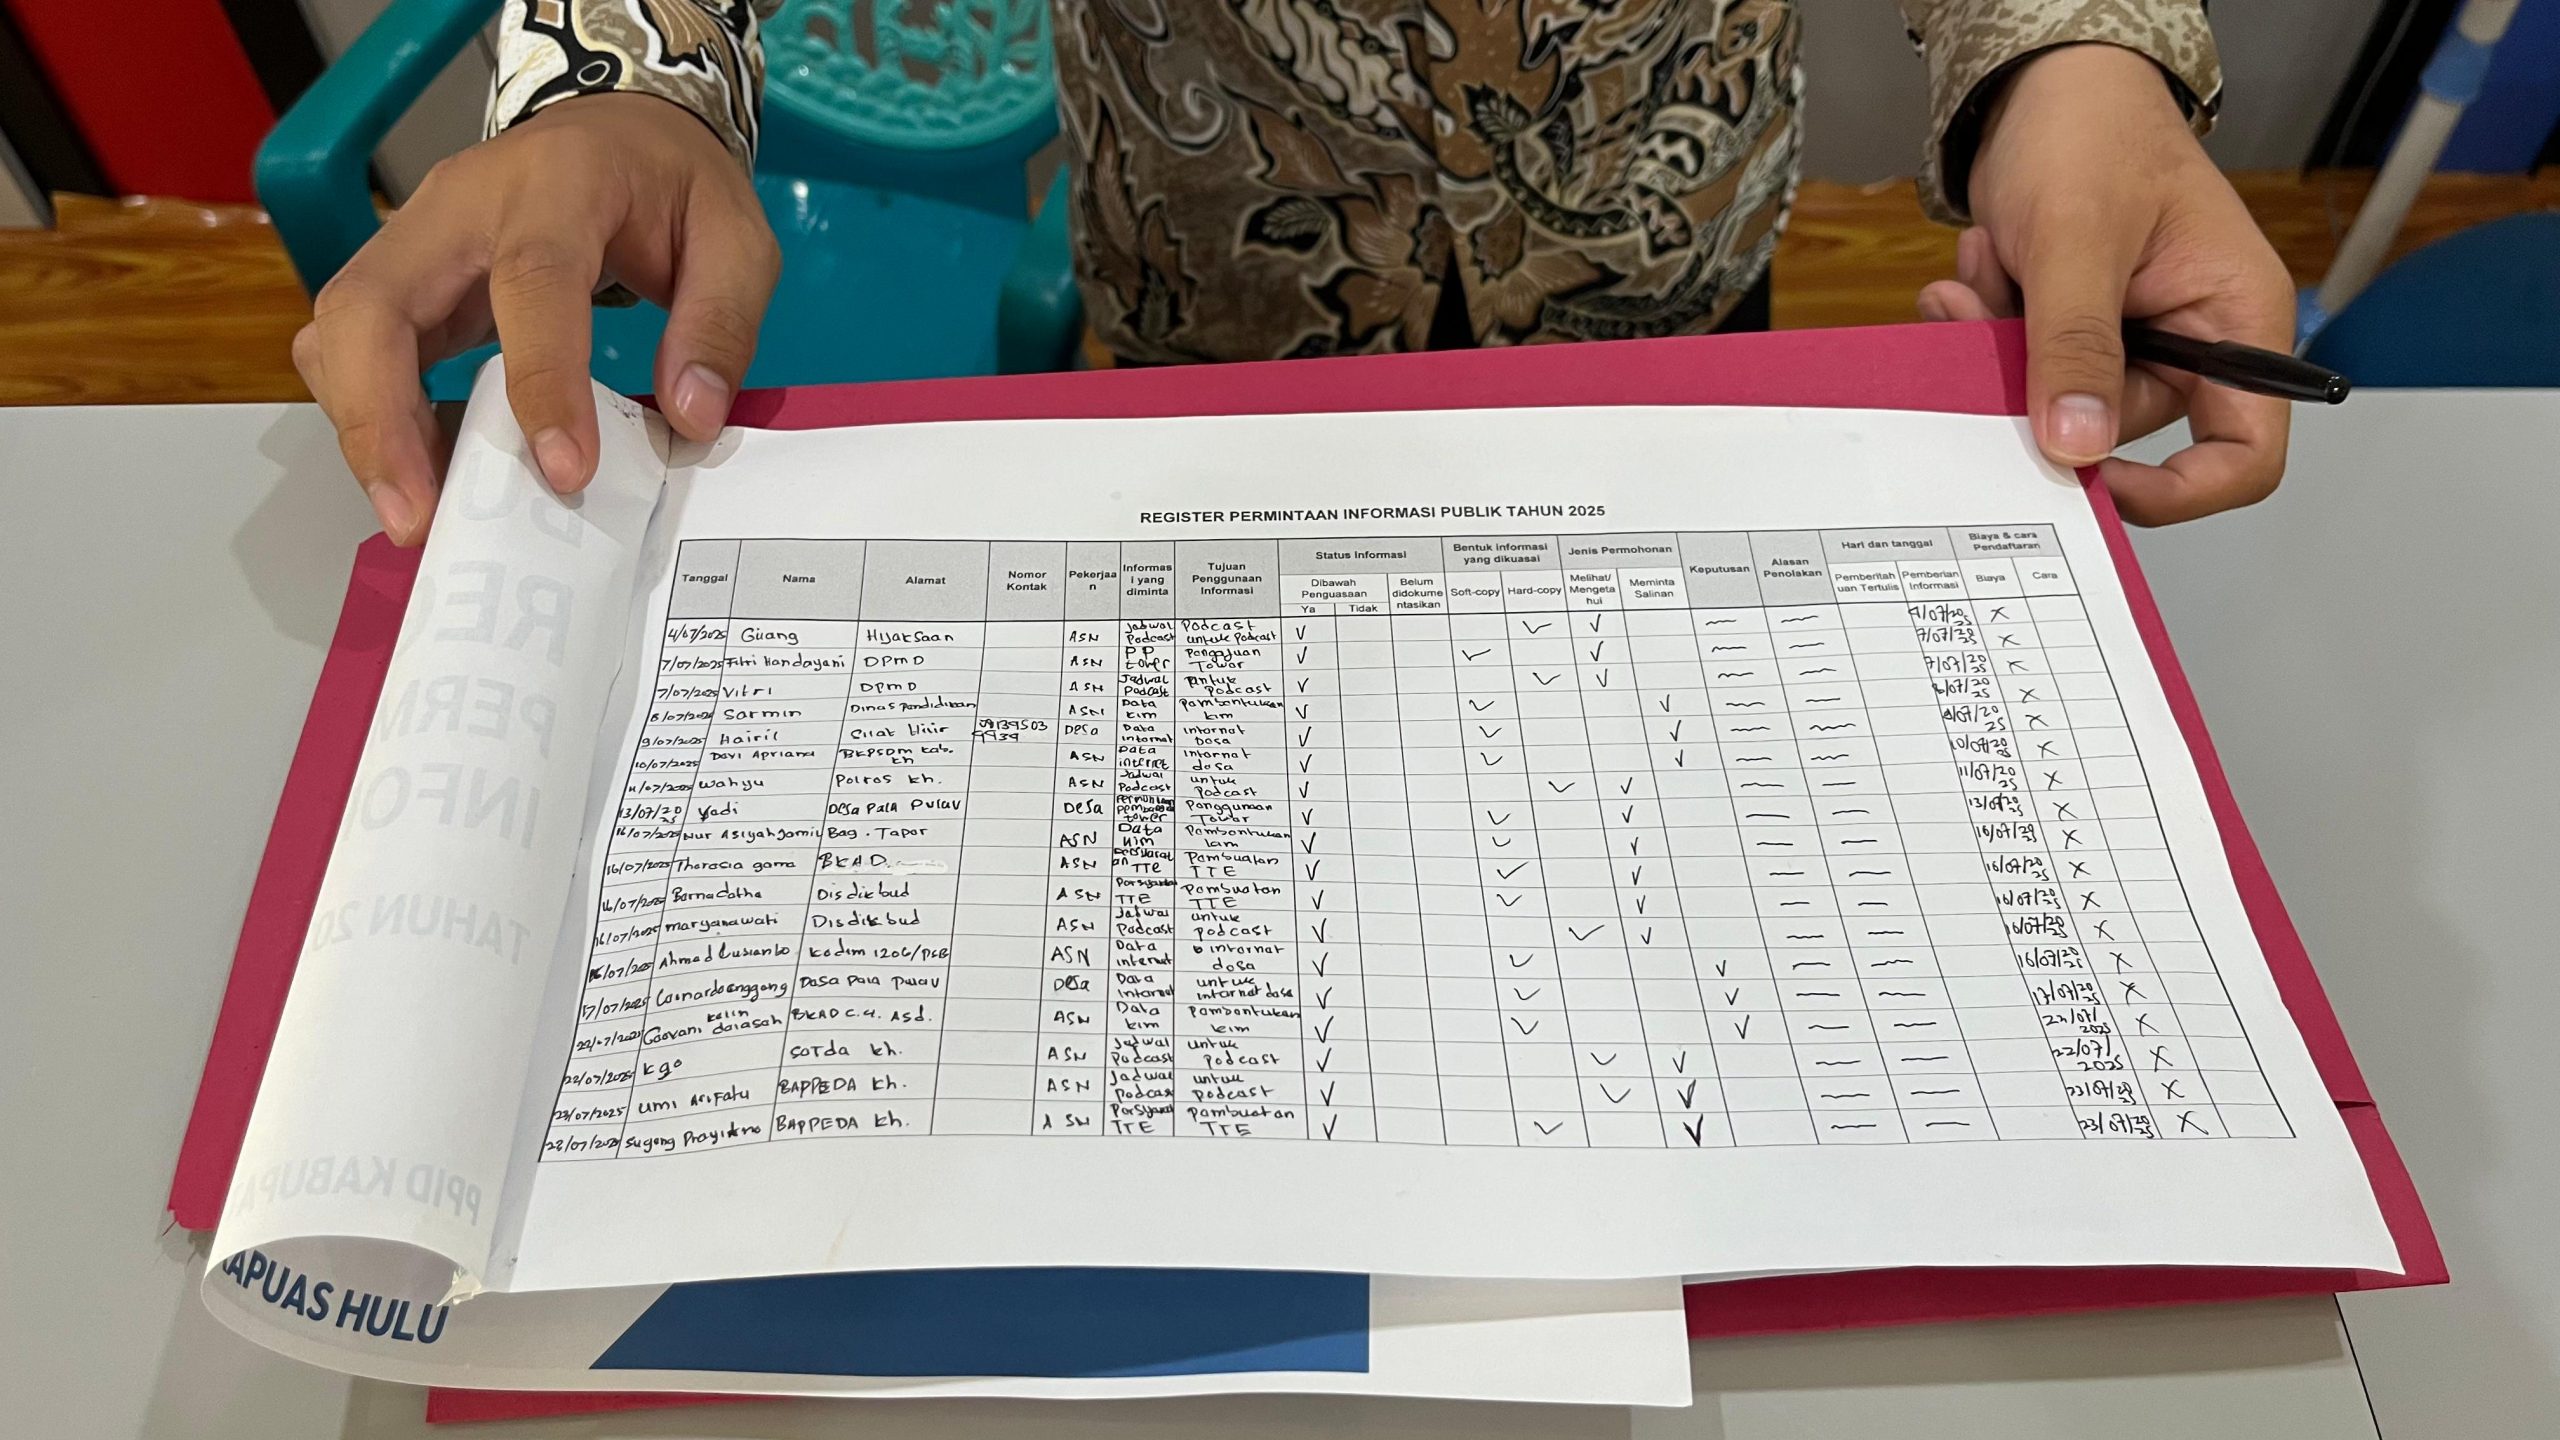 REGISTER PERMINTAAN INFORMASI PUBLIK TAHUN 2025
Tanggal Nama Alamat Nomor Kontak Pekerjaa n Informas i yang diminta Tujuan Penggunaan Informasi Status Informasi Bentuk informasi yang dikuasai Jenis Permohonan Keputusan Alasan Penolakan Hari dan tanggal Biaya & cara Pendaftaran
Dibawah Penguasaan Belum didokume ntasikan Soft-copy Hard-copy Melihat/ Mengeta hui Meminta Salinan Pemberitah uan Tertulis Pemberian Informasi Biaya Cara
Ya Tidak
4/07/2025 Guang ASN Jadwal Podcast Podcast untuk Podcast
7/07/2025 Fitri Handayani DPMD ASN PP tower Pengajuan Tower 7/07/2025
7/07/2025 Vitri DPMD ASN Jadwal Podcast untuk Podcast 7/07/2025
8/07/2025 Sarmin Dinas Pendidikan ASN Data kim Pembentukan kim
9/07/2025 Hairil Silat Hilir Desa Data internet internet Desa
10/07/2025 Devi Apriana BKPSDM kab. kh ASN Data internet internet desa 10/07/2025
11/07/2025 Wahyu Polres kh. ASN Jadwal Podcast untuk Podcast 11/07/2025
13/07/2025 Yadi Desa Pala Pulau Desa tower Penggunaan Tower 13/07/2025
16/07/2025 Nur Asiyah Jamil Bag. Tapor ASN Data kim Pembentukan 16/07/2025
16/07/2025 BKAD ASN Persyaratan TTE Pembuatan TTE 16/07/2025
16/07/2025 Disdikbud ASN TTE Pembuatan TTE 16/07/2025
16/07/2025 Maryanawati Disdikbud ASN Jadwal Podcast untuk podcast 16/07/2025
16/07/2025 Ahmad Kodim 1206/PSB ASN Data internet internet desa 16/07/2025
17/07/2025 Desa Pala Pulau Desa Data internet untuk internet desa 17/07/2025
22/07/2025 BKAD ASN Data kim Pembentukan kim
22/07/2025 kgo Setda kh. ASN Jadwal Podcast untuk podcast 22/07/2025
23/07/2025 Umi Arifatu BAPPEDA kh. ASN Jadwal Podcas untuk podcast 23/07/2025
Sugeng Prayitno BAPPEDA kh. ASN TTE Pembuatan TTE 23/07/2025
TAHUN 20
PPID KABUPA
APUAS HULU